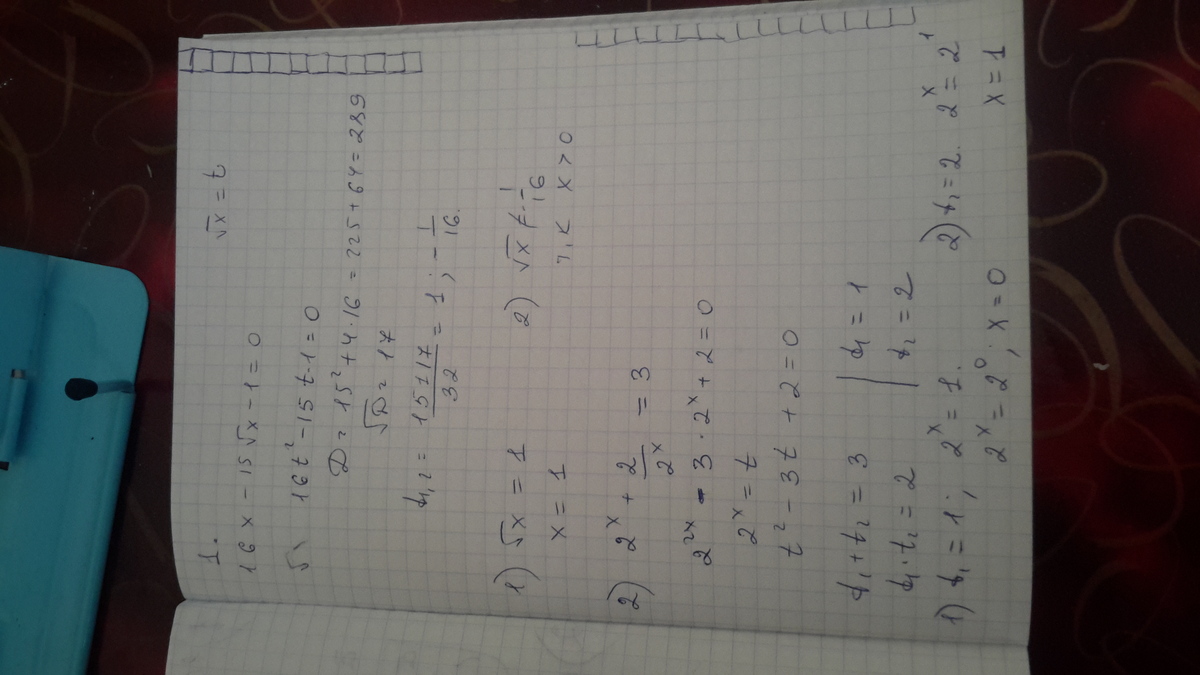 1.
16x - 15√x - 1 = 0 √x = t
16t² - 15t - 1 = 0
D = 15² + 4·16 = 225 + 64 = 289
√D = 17
t₁,₂ = (15 ± 17)/32 = 1; -1/16.
1) √x = 1 2) √x ≠ -1/16
x = 1 т.к x > 0
2) 2ˣ + 2/2ˣ = 3
2²ˣ - 3·2ˣ + 2 = 0
2ˣ = t
t² - 3t + 2 = 0
t₁ + t₂ = 3 | t₁ = 1
t₁·t₂ = 2 | t₂ = 2
1) t₁ = 1; 2ˣ = 1. 2) t₂ = 2. 2ˣ = 2¹
2ˣ = 2⁰; x = 0 x = 1